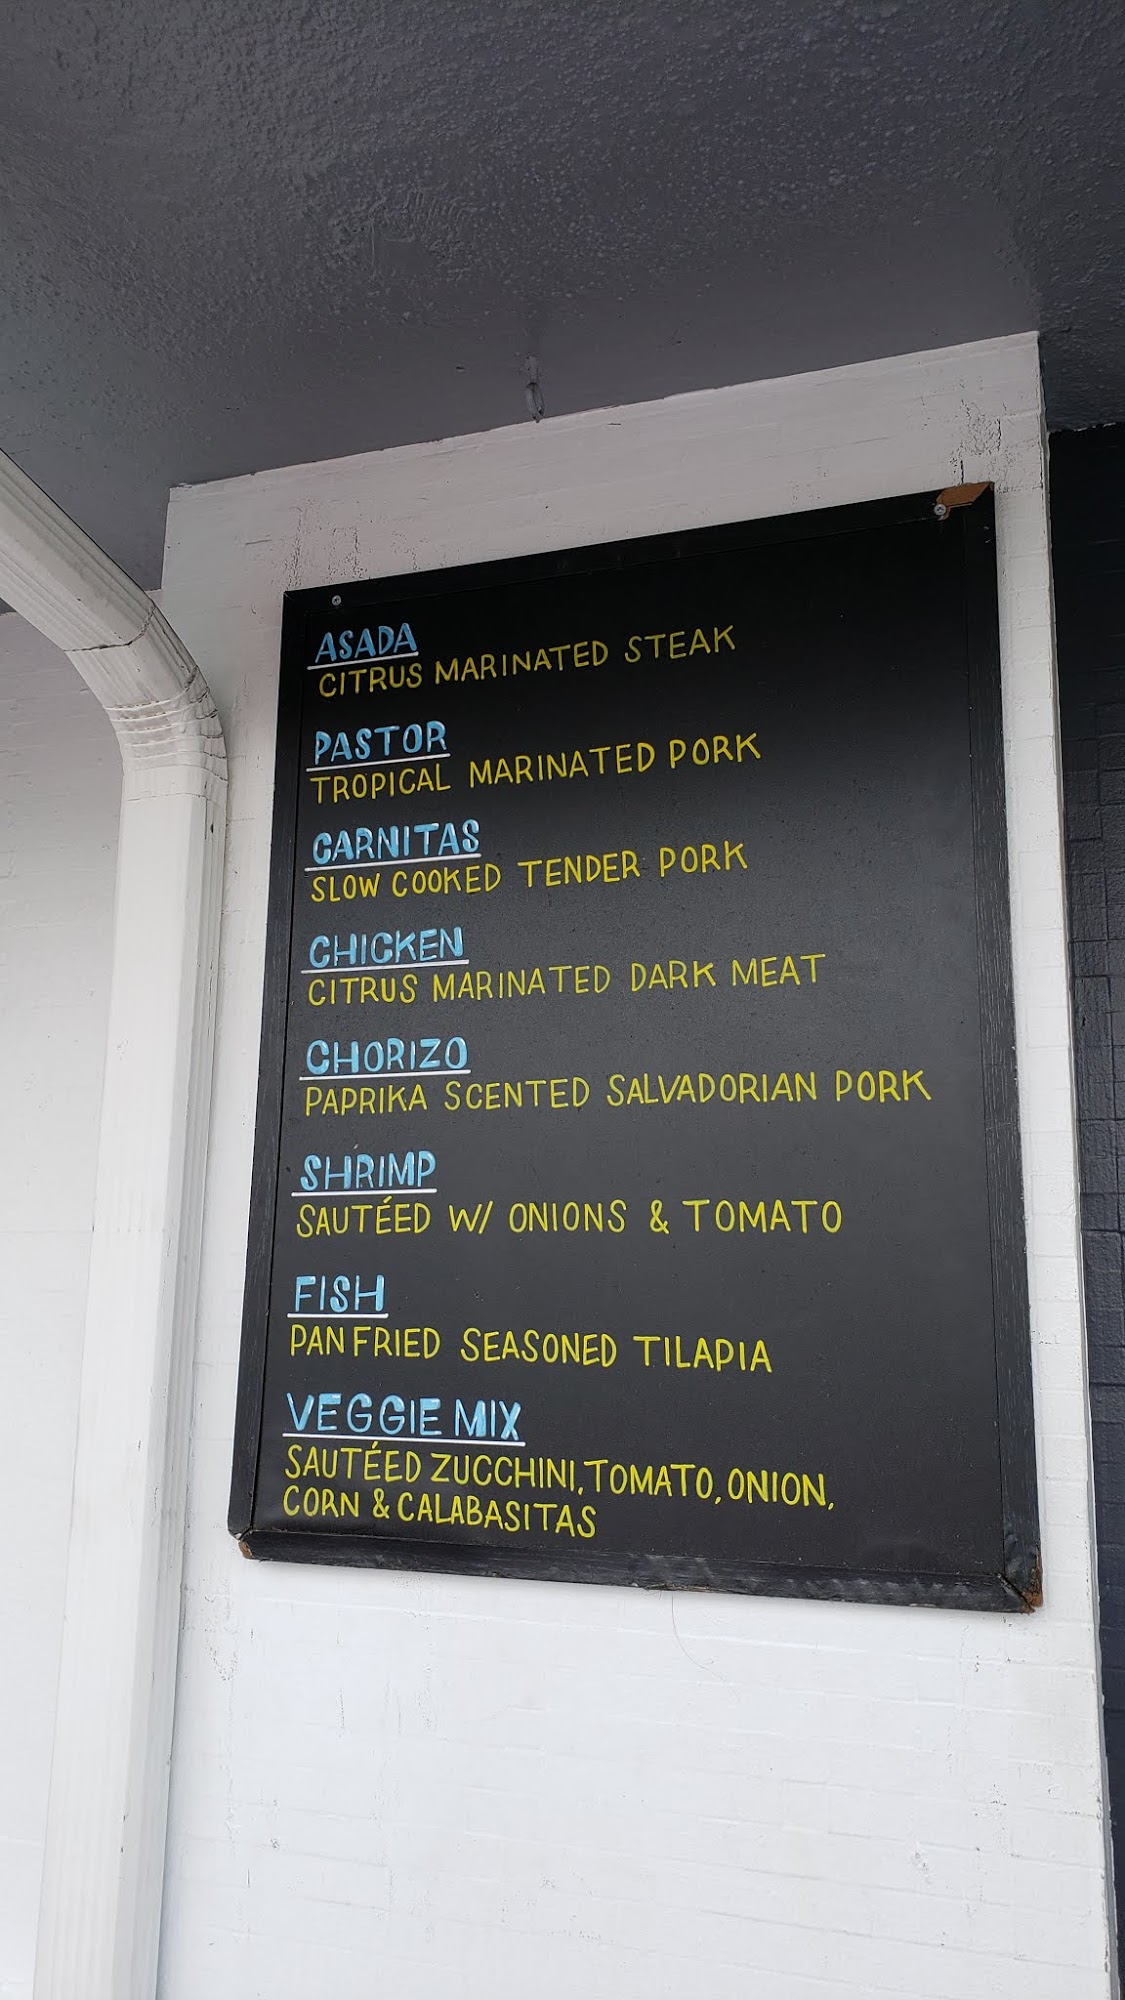 ASADA
CITRUS MARINATED STEAK
PASTOR
TROPICAL MARINATED PORK
CARNITAS
SLOW COOKED TENDER PORK
CHICKEN
CITRUS MARINATED DARK MEAT
CHORIZO
PAPRIKA SCENTED SALVADORIAN PORK
SHRIMP
SAUTÉED W/ ONIONS & TOMATO
FISH
PAN FRIED SEASONED TILAPIA
VEGGIE MIX
SAUTÉED ZUCCHINI, TOMATO, ONION,
CORN & CALABASITAS